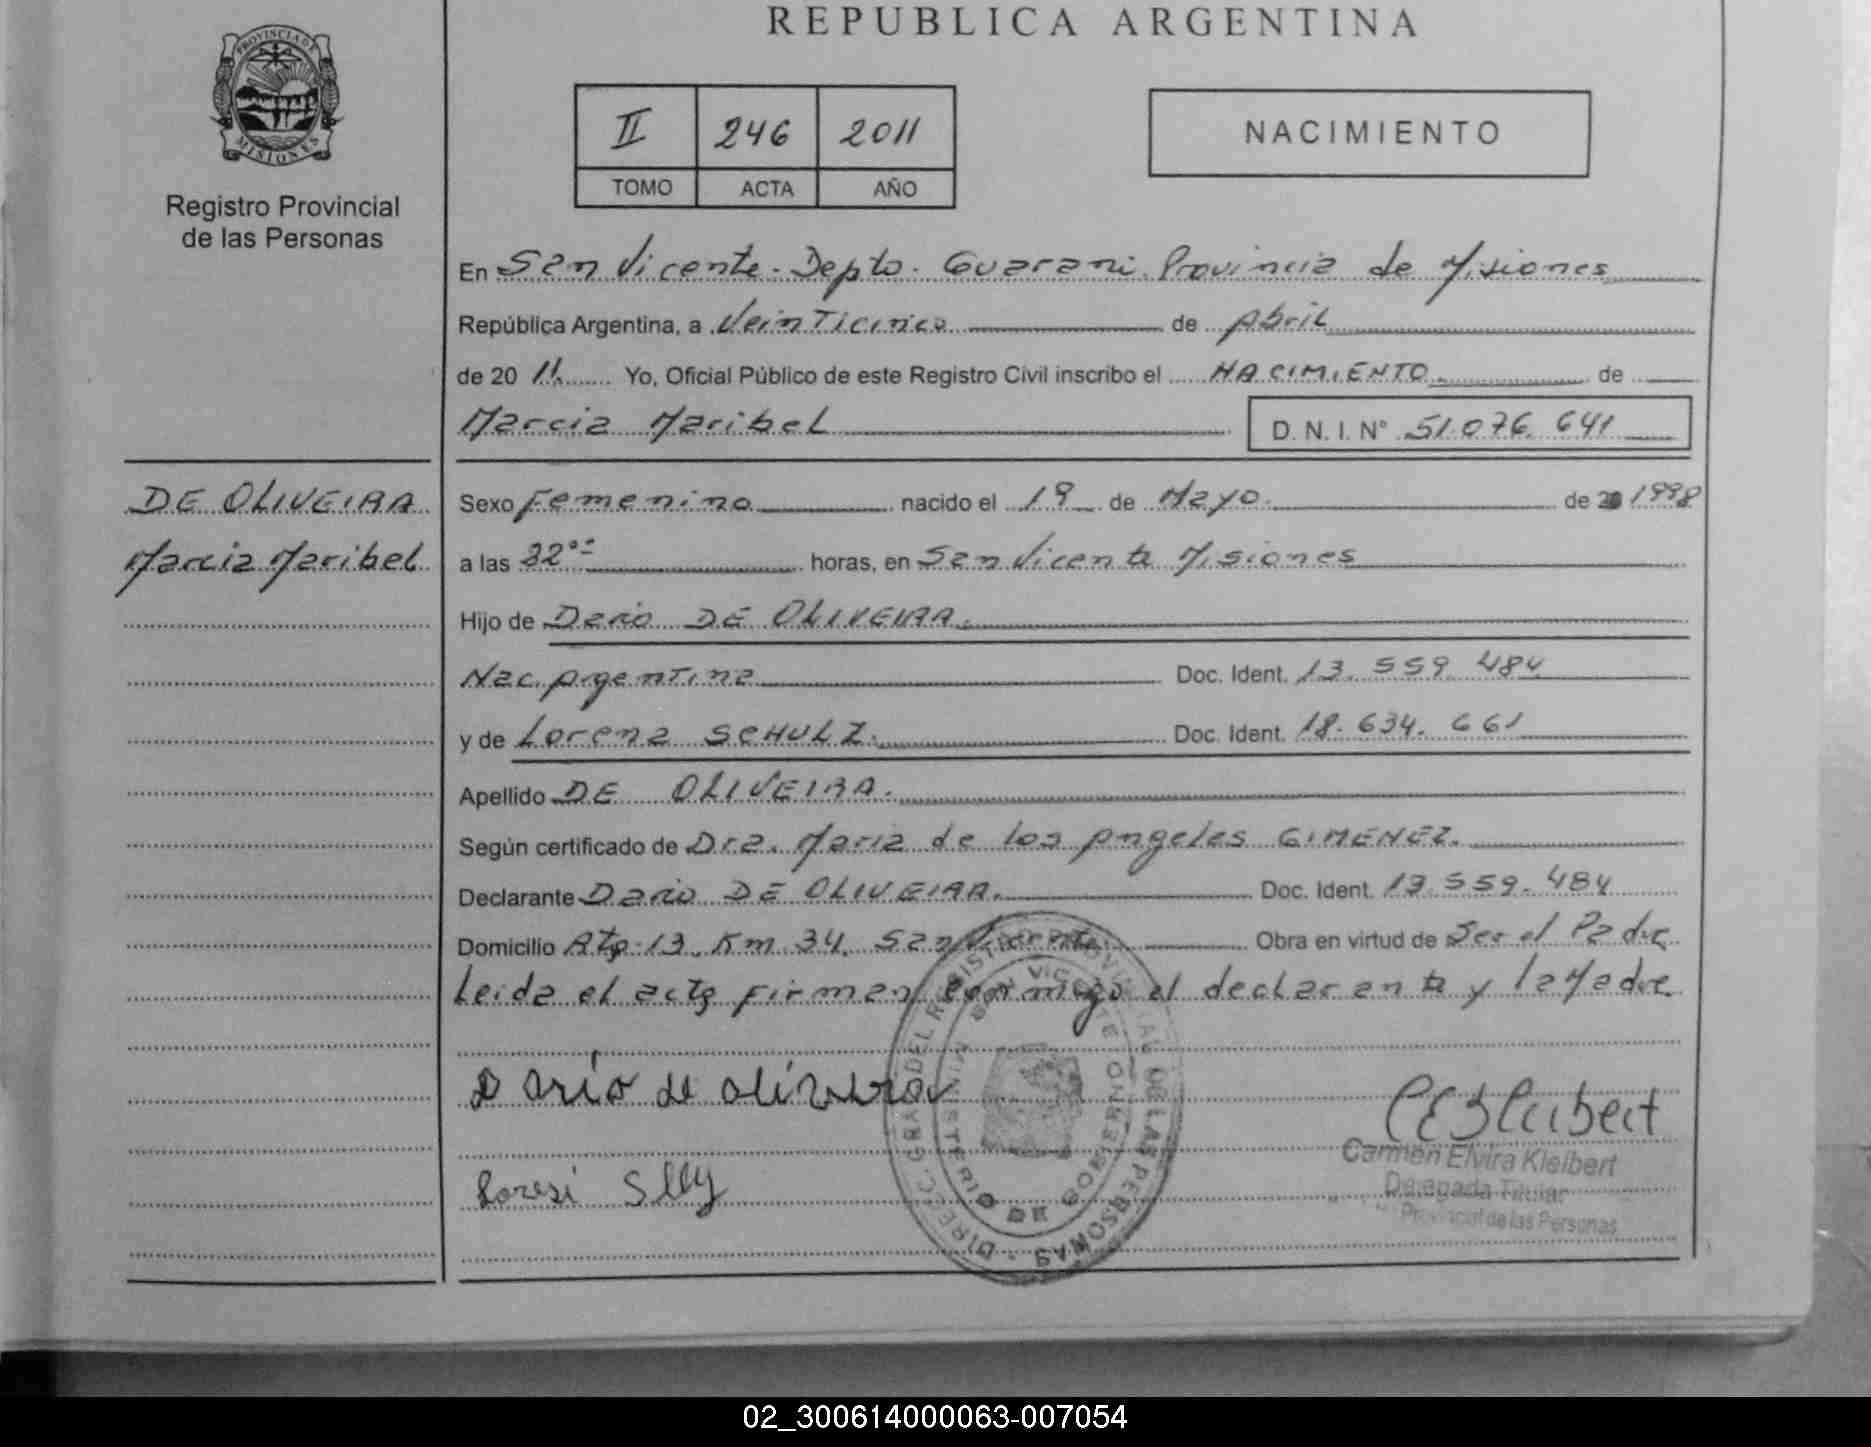 REPUBLICA ARGENTINA
PROVINCIA DE
MISIONES
Registro Provincial
de las Personas
II 246 2011
TOMO ACTA AÑO
NACIMIENTO
En San Vicente. Depto. Guarani. Provincia de Misiones
República Argentina, a Veinticinco de Abril
de 20 11. Yo, Oficial Público de este Registro Civil inscribo el NACIMIENTO de
Marcia Maribel D. N. I. N° 51.076.641
DE OLIVEIRA
Marcia Maribel
Sexo Femenino nacido el 19 de Mayo. de 1998
a las 22°° horas, en San Vicente Misiones
Hijo de Dario DE OLIVEIRA.
Nac. Argentina Doc. Ident. 13.559.484
y de Lorena SCHULZ. Doc. Ident. 18.634.661
Apellido DE OLIVEIRA.
Según certificado de Dra. Maria de los Angeles GIMENEZ.
Declarante Dario DE OLIVEIRA. Doc. Ident. 13.559.484
Domicilio Km. 34. San Vicente. Obra en virtud de Ser el Padre
Leida el acta firman conmigo el declarante y la Madre
Dario de olivera
DIREC. GRAL DEL REGISTRO PROVINCIAL DE LAS PERSONAS
SAN VICENTE
MINISTERIO DE GOBIERNO
Carmen Elvira Kleibert
Delegada Titular
Provincial de las Personas
02_300614000063-007054